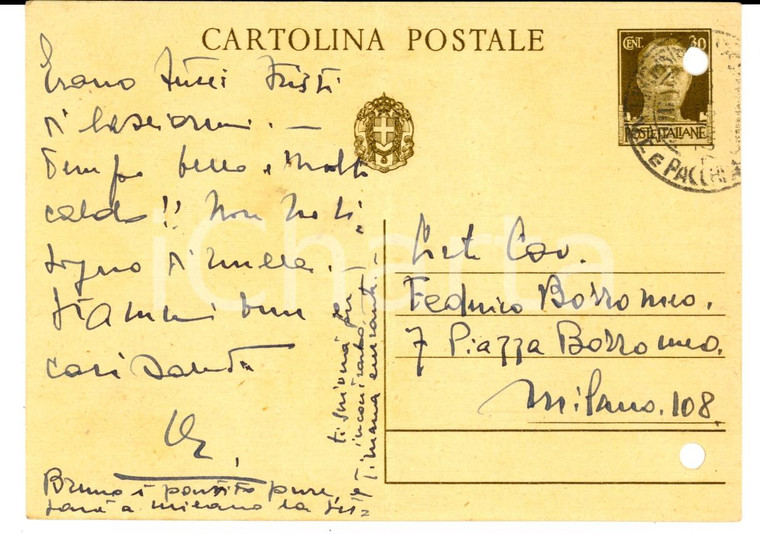 CARTOLINA POSTALE
CENT. 30
POSTE ITALIANE
E PACCHI
Erano tutti tristi
di lasciarmi. —
Tempo bello e molto
caldo!! Non ho bi=
sogno di nulla. —
Stammi bene
cari saluti
Bruno è partito pure,
sarà a Milano la
Cav.
Federico Borromeo.
7 Piazza Borromeo.
Milano. 108.
iCharta